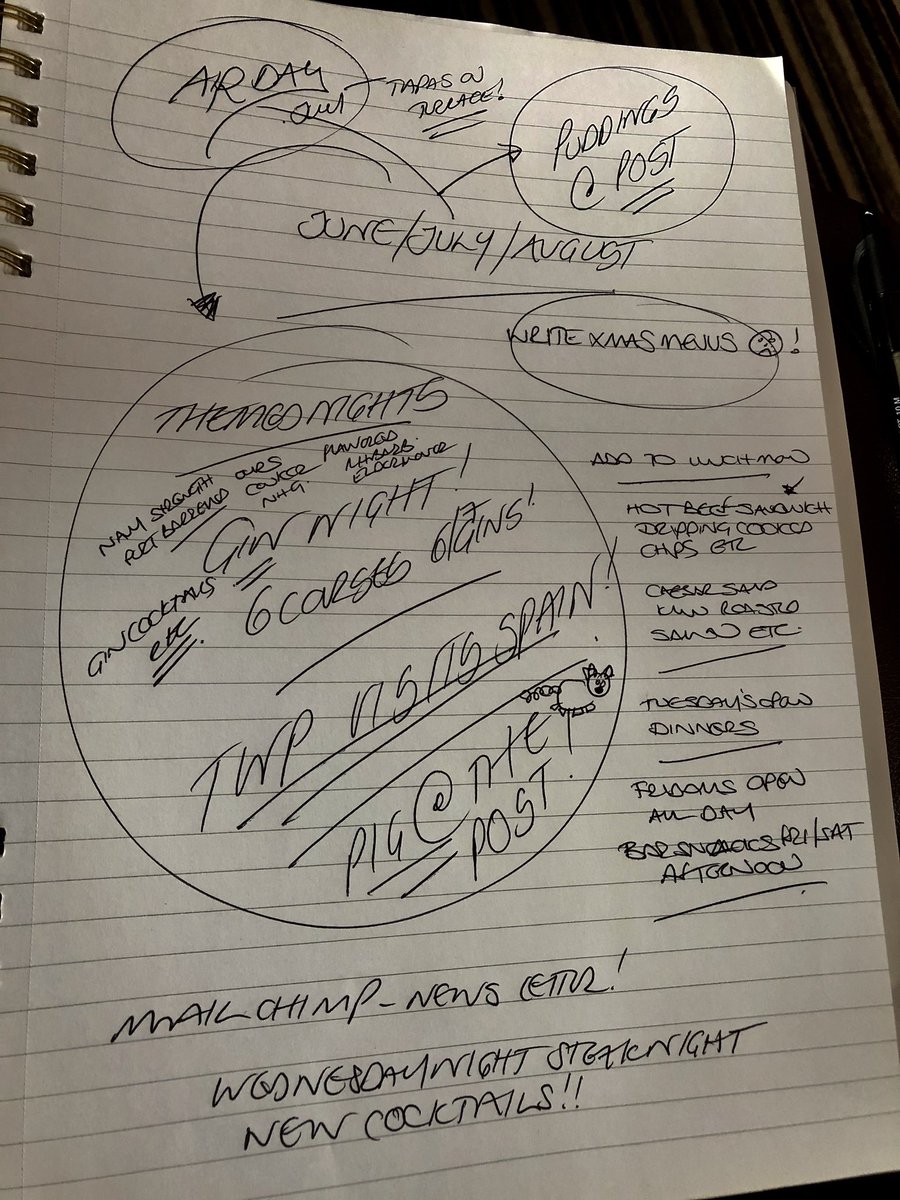 AIR DAY
TAPAS ON
TERRACE!
PUDDINGS
@ POST
JUNE/JULY/AUGUST
WRITE XMAS MENUS !
THEMED NIGHTS
NAVY STRENGTH
PORT BARRELLED
FLAVORED
RHBARB.
ELDERFLOWER
GIN NIGHT!
GIN COCKTAILS
etc.
6 CORSES 6/7 GINS!
TWP VISITS SPAIN!
PIG @ THE
POST!
ADD TO LUNCH MENU
HOT BEEF SANDWICH
DRIPPING COOKED
CHIPS ETC
CAESAR SALAD
ROASTED
SALMON ETC.
TUESDAY'S OPEN
DINNERS
OPEN
ALL DAY
BAR SNACKS FRI/SAT
AFTERNOON
MAILCHIMP - NEWS LETTER!
WEDNESDAY NIGHT STEAK NIGHT
NEW COCKTAILS!!